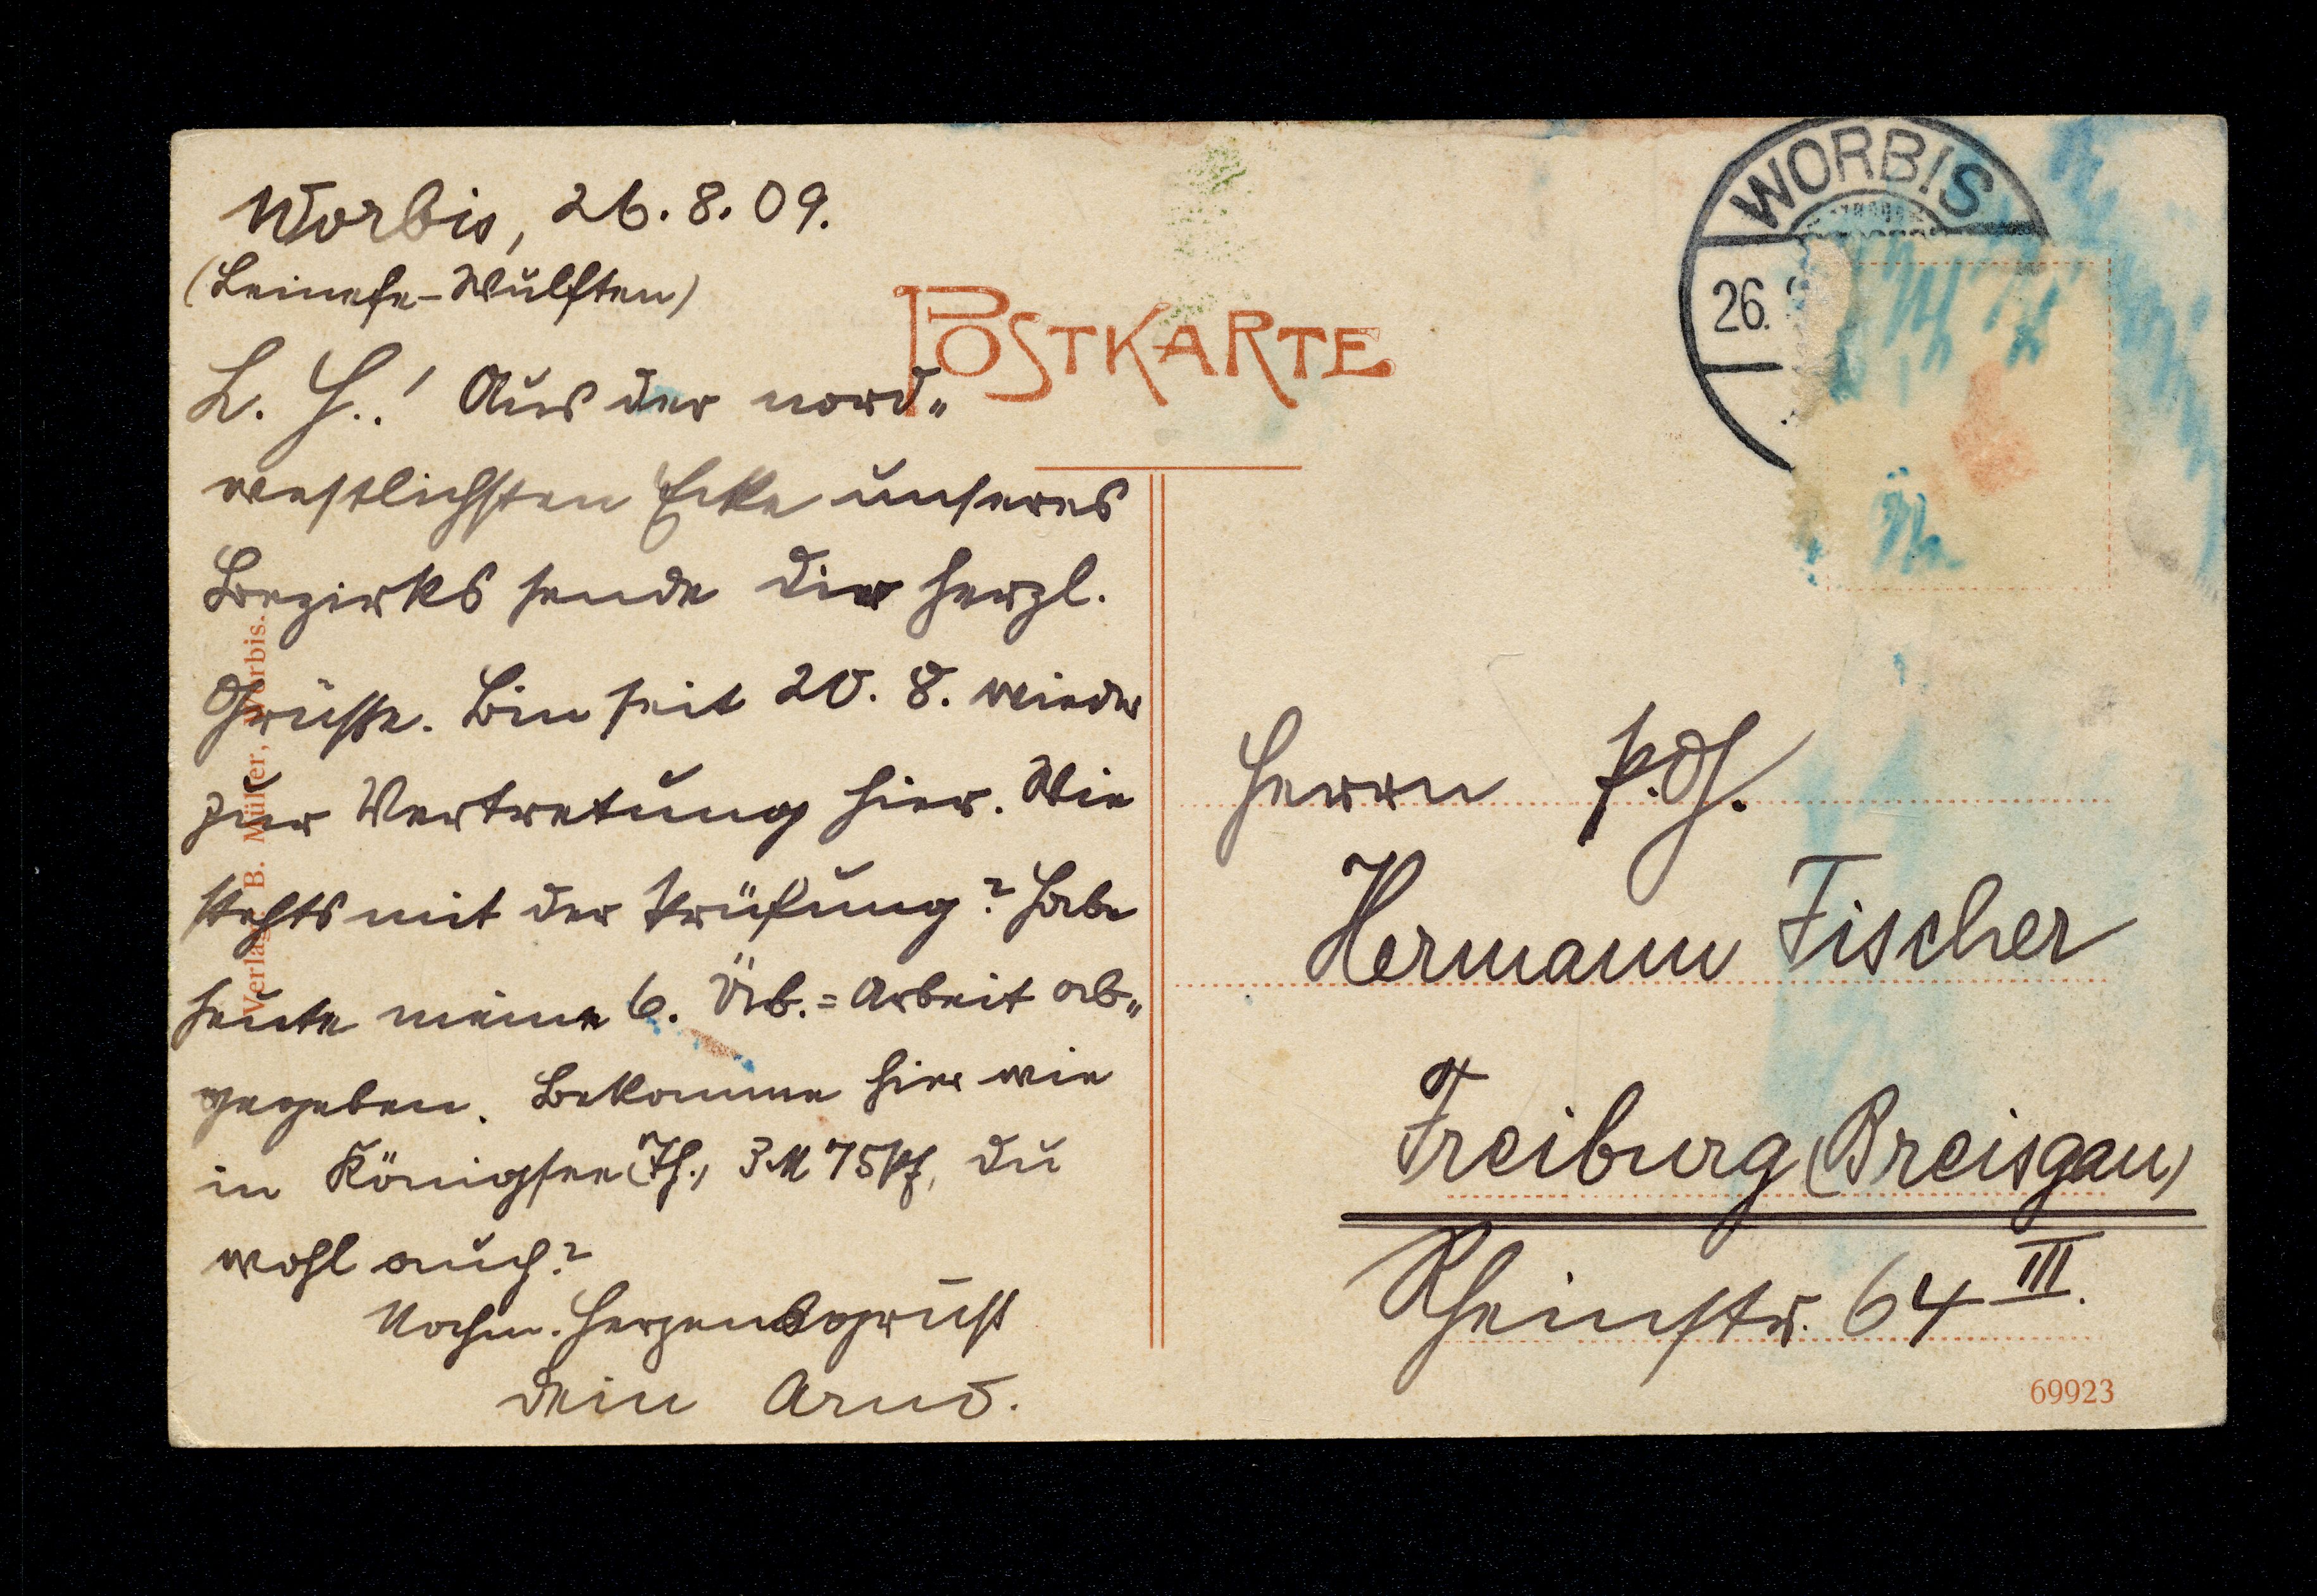 Worbis, 26. 8. 09.
(Leinefe-Wulften)
L. H.! Aus der nord-
westlichsten Ecke unseres
Bezirks sende dir herzl.
Grüsse. Bin seit 20. 8. wieder
zur Vertretung hier. Wie
stehts mit der Prüfung? Habe
heute meine 6. Üb.=Arbeit ab-
gegeben. Bekomme hier wie
in Königsee (Th.) 3 M 75 Pf, du
wohl auch?
Nochm. Herzensgruss
dein Arno.
POSTKARTE
WORBIS
26.
Herrn P.G.
Hermann Fischer
Freiburg (Breisgau)
Rheinstr. 64 III.
69923
Verlag B. Müller, Worbis.